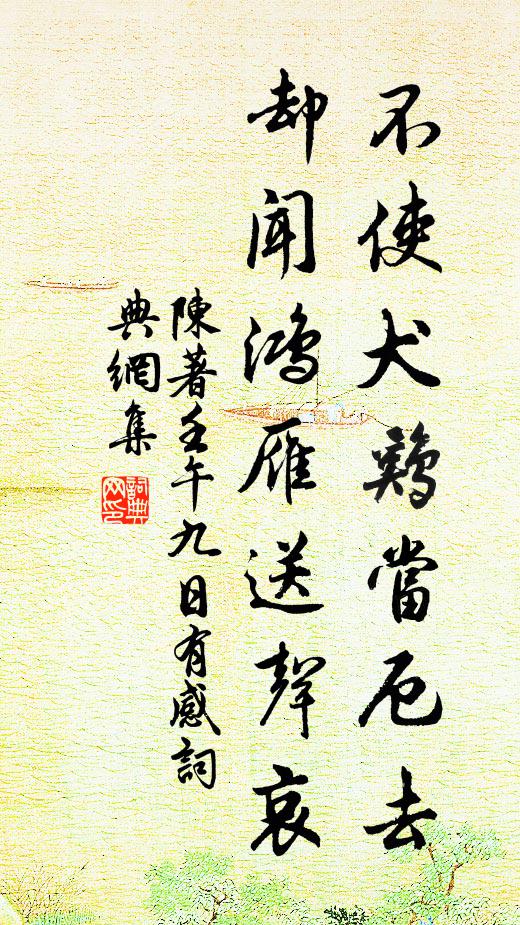 不使犬鷄當厄去
却聞鴻雁送聲哀
陳著壬午九日有感詞
典網集
詞典網印